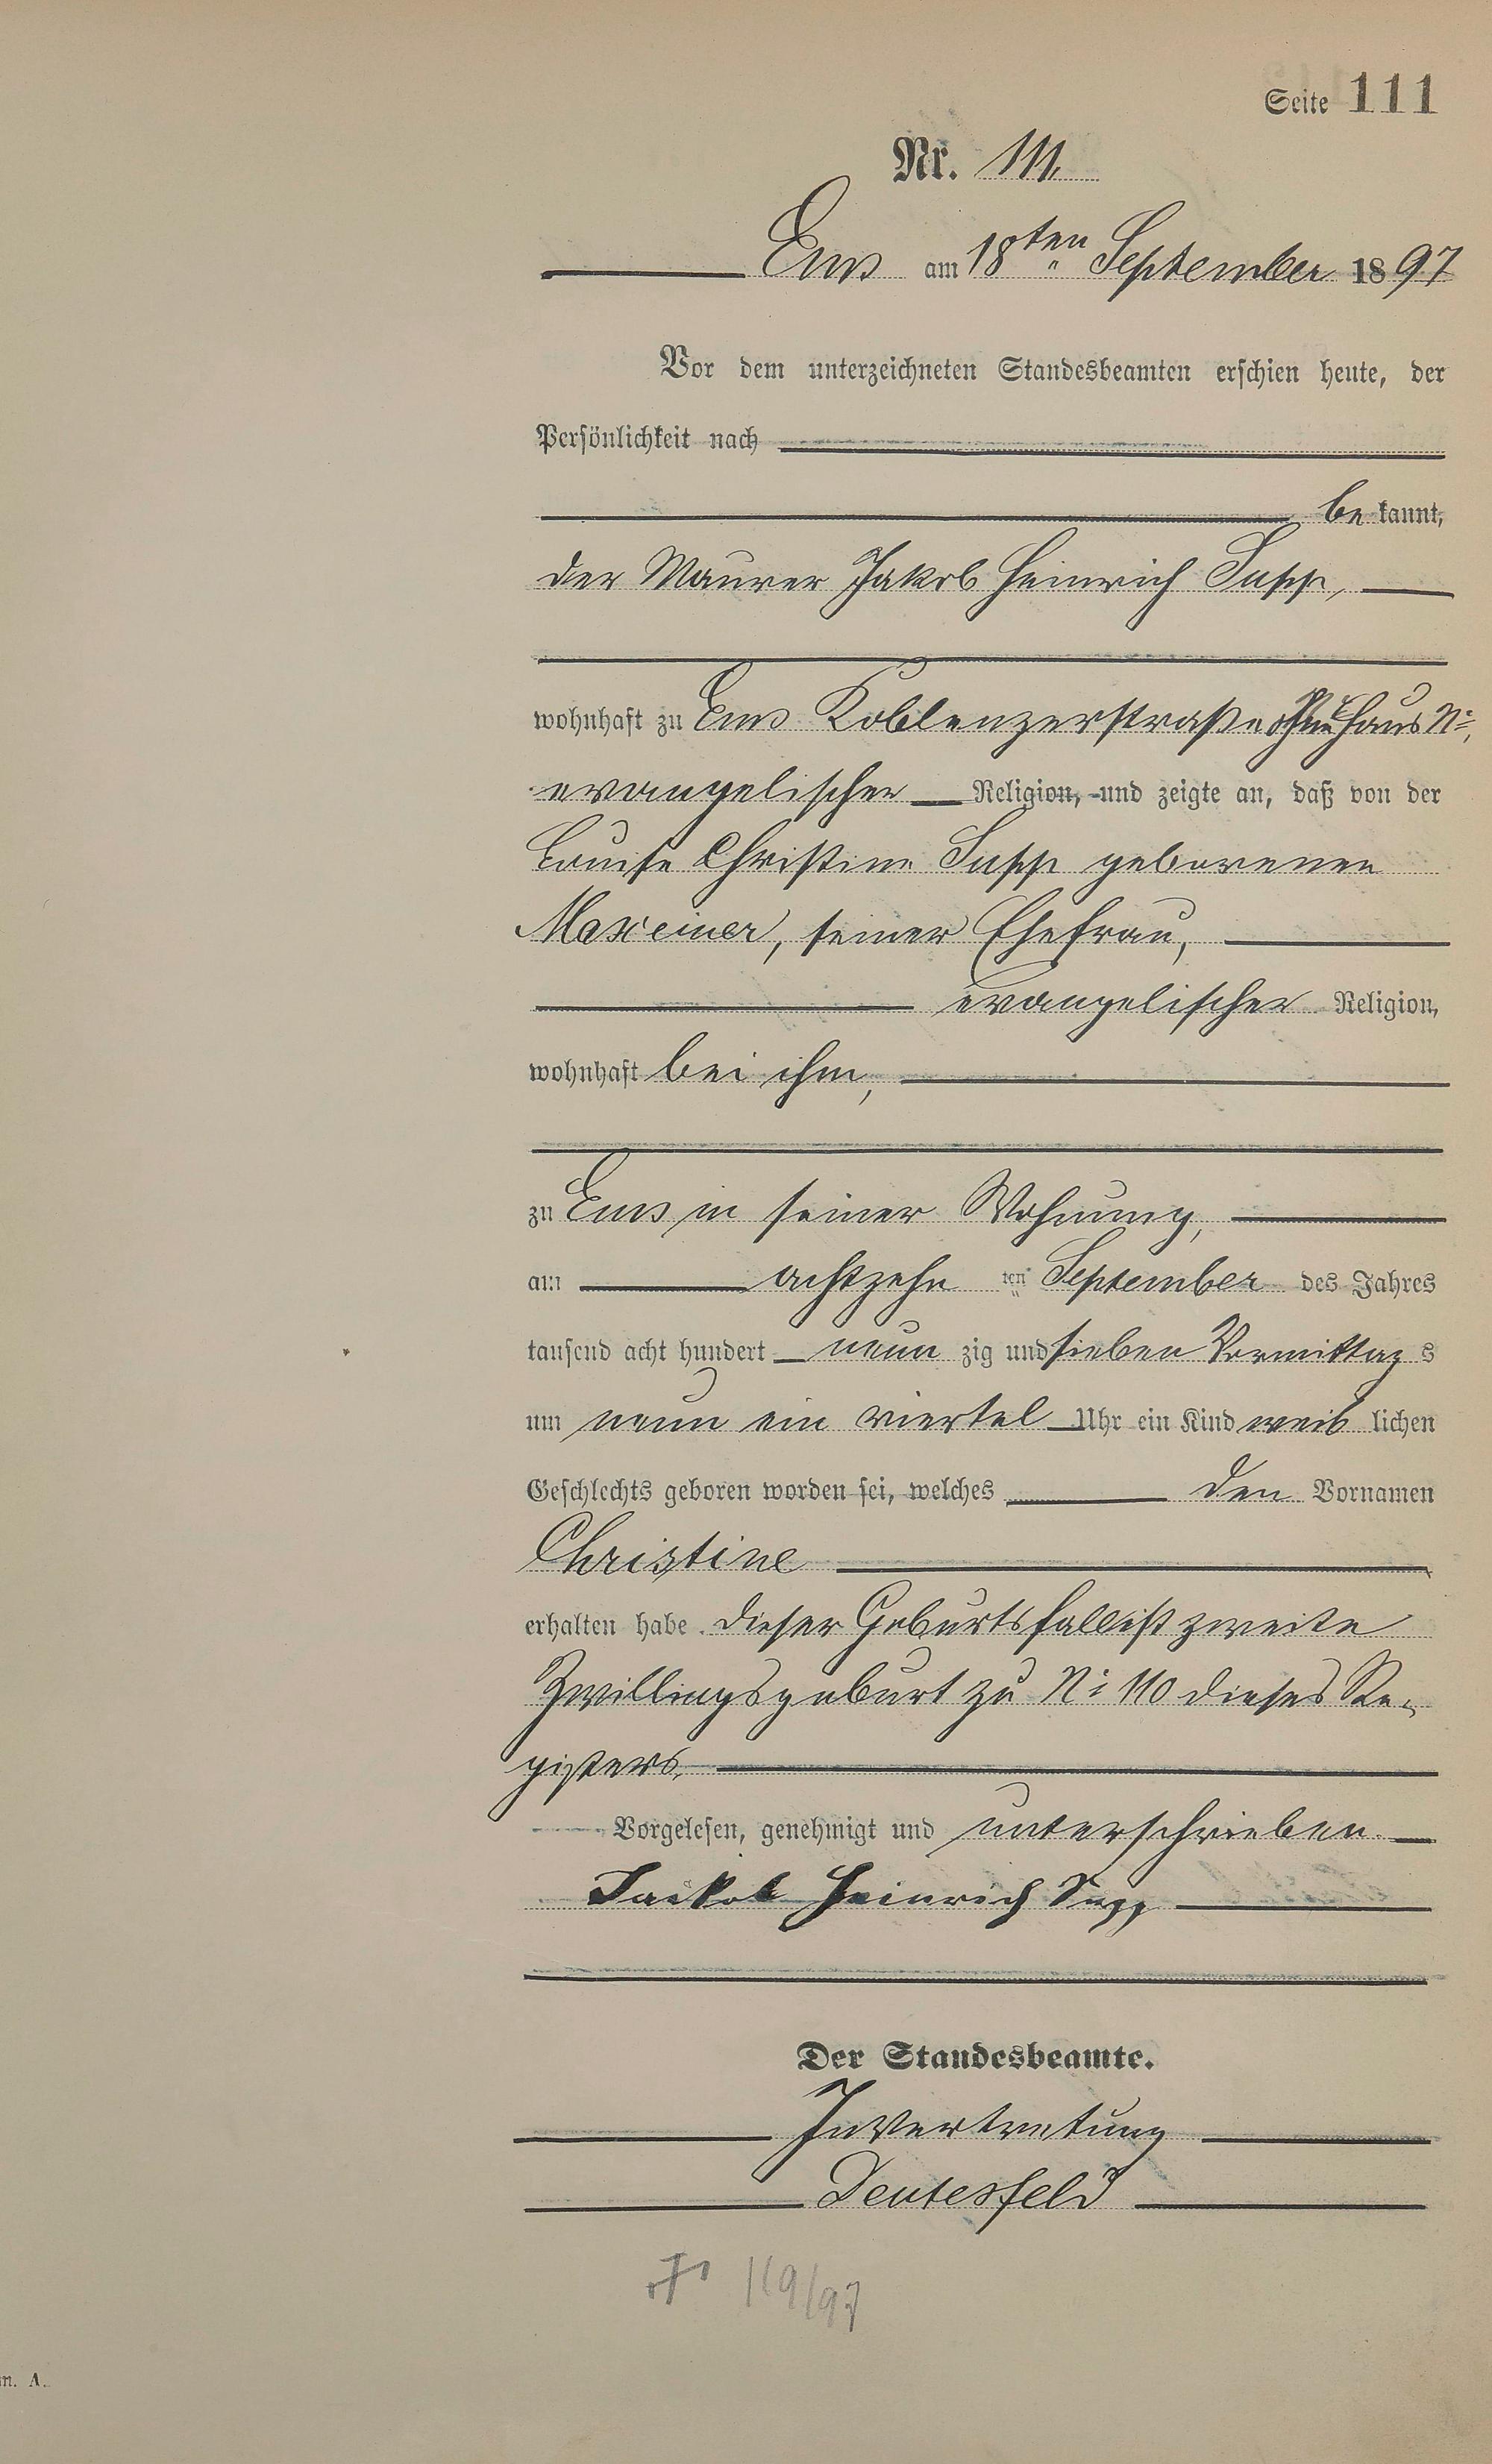 Seite 111
Nr. 111.
Ems am 18ten September 1897
Vor dem unterzeichneten Standesbeamten erschien heute, der
Persönlichkeit nach
bekannt,
der Maurer Jakob Heinrich Supp,
wohnhaft zu Ems Koblenzerstraße ohne Haus No,
evangelischer Religion, und zeigte an, daß von der
Louise Christine Supp geborenen
Maxeiner, seiner Ehefrau,
evangelischer Religion,
wohnhaft bei ihm,
zu Ems in seiner Wohnung,
am achtzehnten September des Jahres
tausend acht hundert neunzig und sieben Vormittags
um neun ein viertel Uhr ein Kind weiblichen
Geschlechts geboren worden sei, welches den Vornamen
Christine
erhalten habe. Dieser Geburtsfall ist zweite
Zwillingsgeburt zu No 110 dieses Re-
gisters.
Vorgelesen, genehmigt und unterschrieben.
Jackob Heinrich Supp
Der Standesbeamte.
In Vertretung
Deutesfeld
† 119/97
n. A.